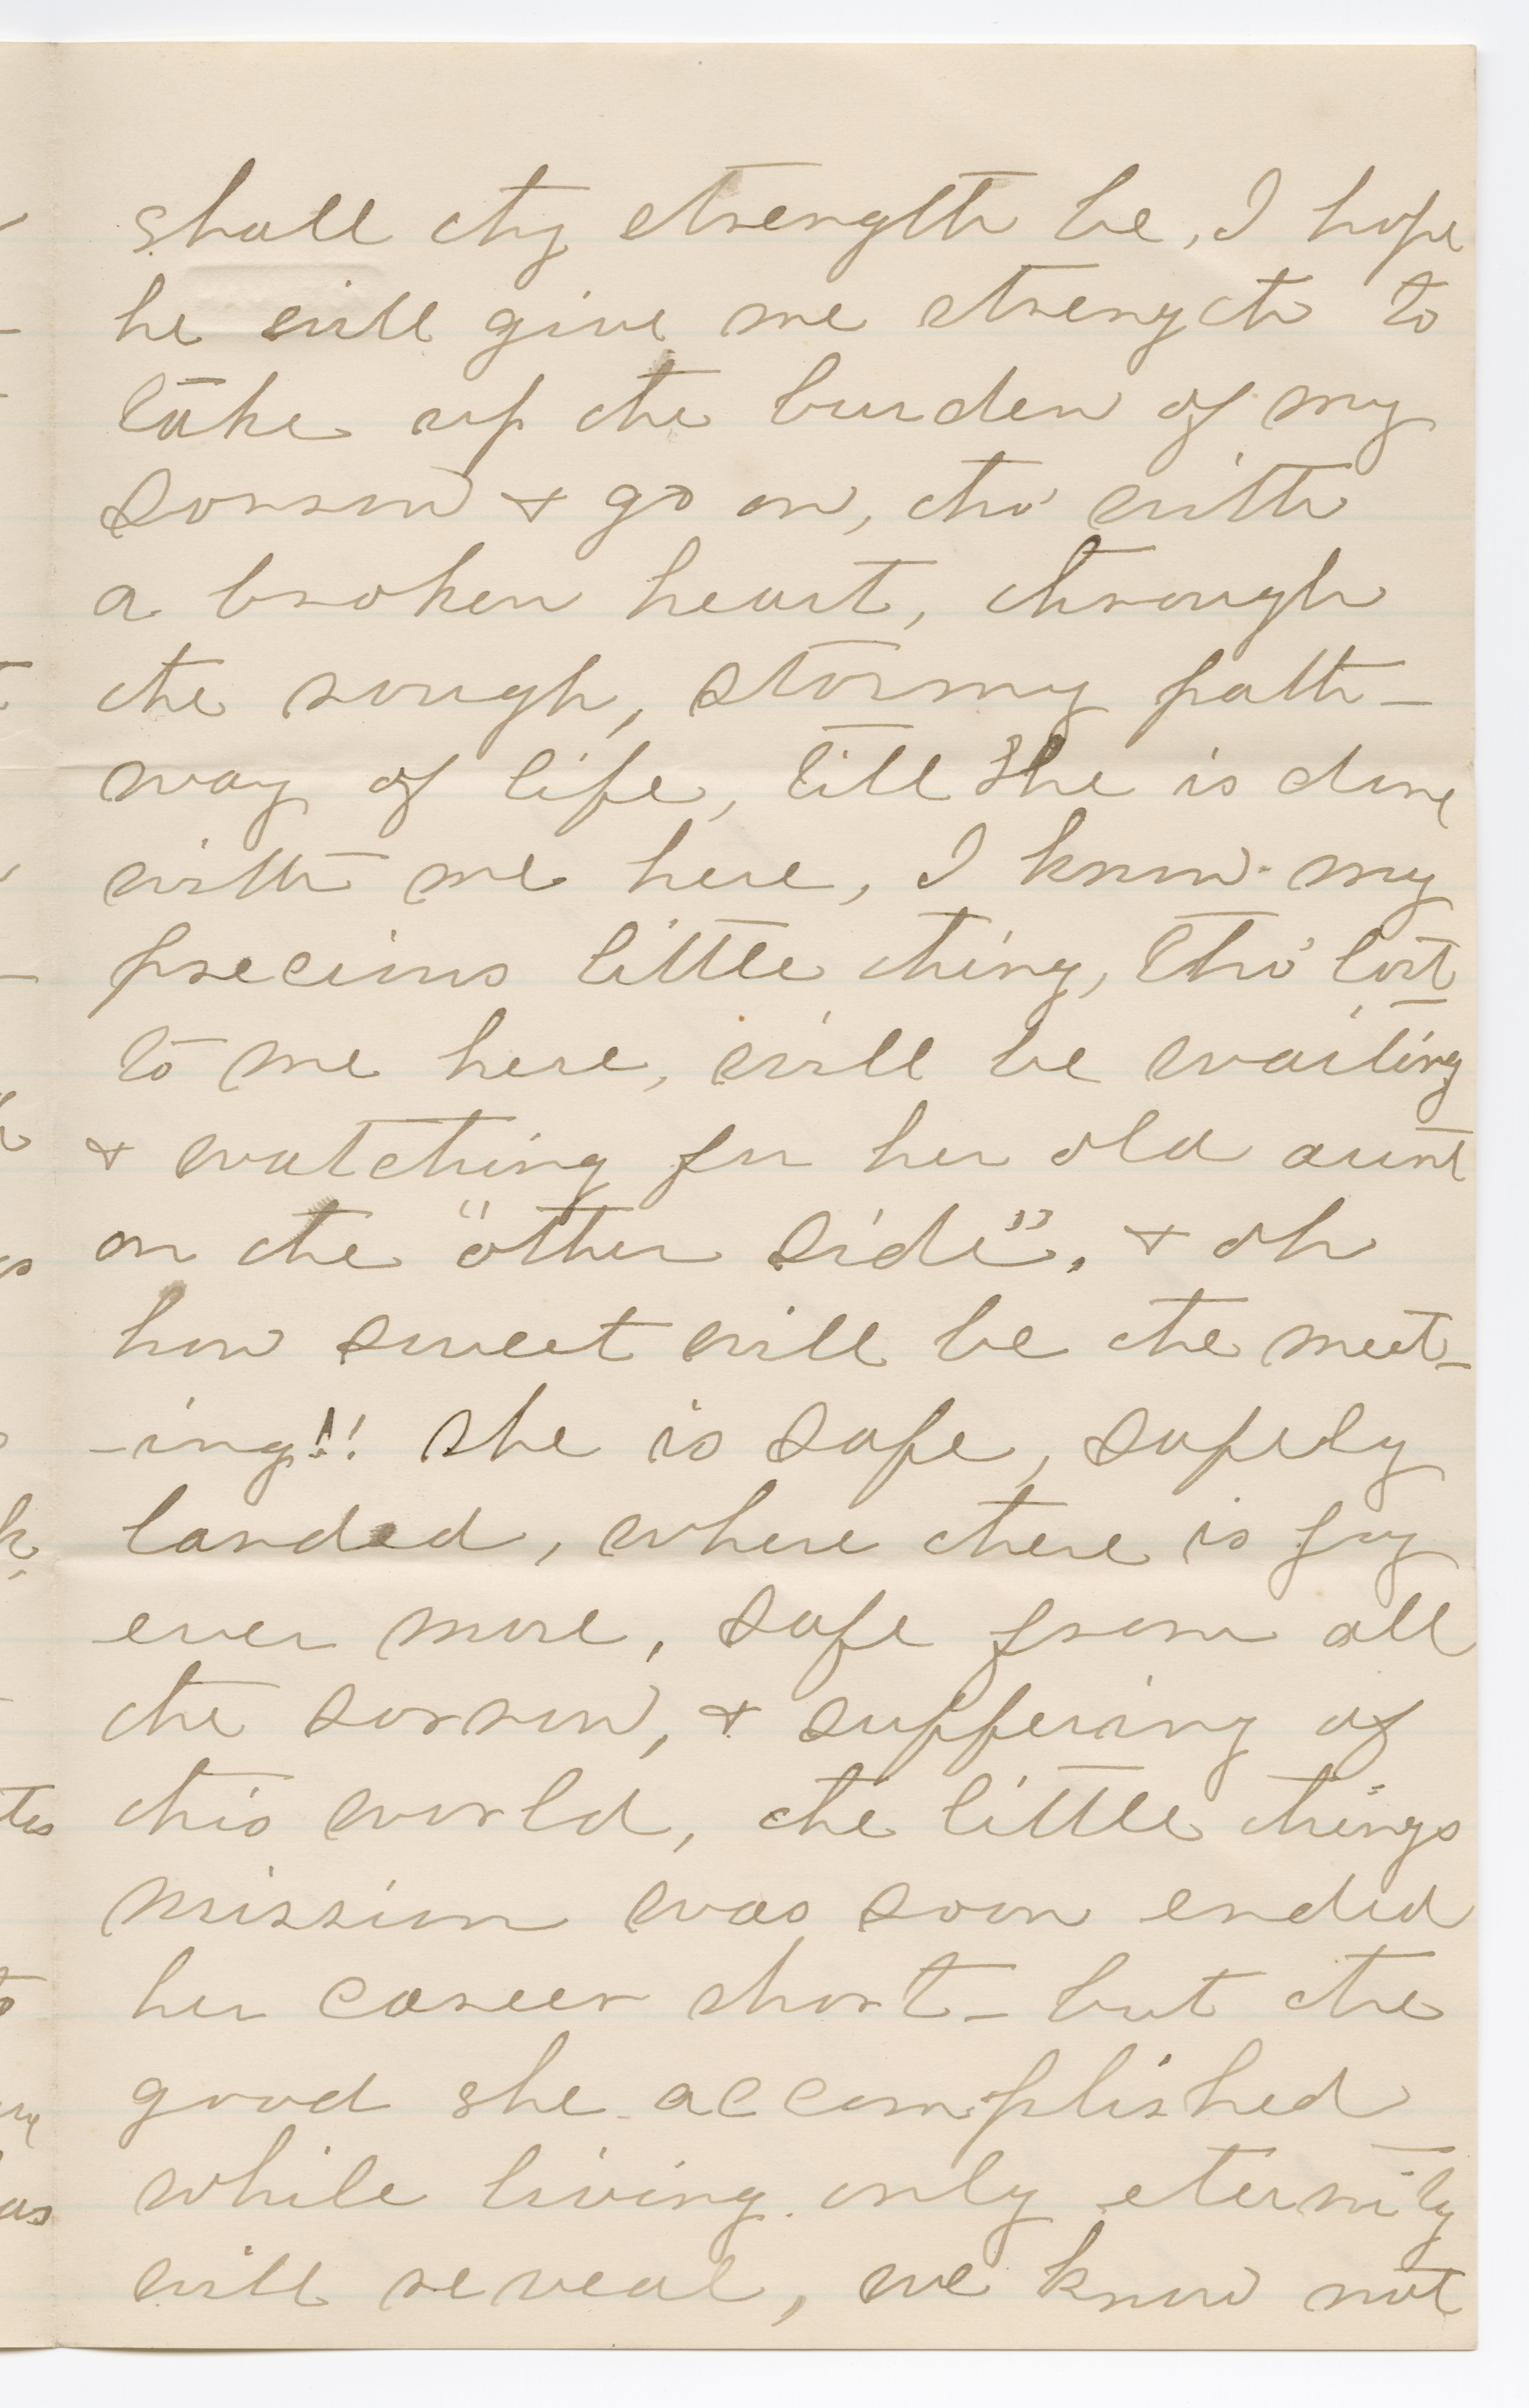 shall thy strength be, I hope
he will give me strength to
take up the burden of my
sorrow & go on, tho' with
a broken heart, through
the rough, stormy path-
way of life, till She is done
with me here, I know my
precious little thing, tho' lost
to me here, will be waiting
& watching for her old aunt
on the "other side". & oh
how sweet will be the meet-
-ing!! She is safe, safely
landed, where there is joy
ever more, safe from all
the sorrow, & suffering of
this world, the little things
mission was soon ended
her career short - but the
good she accomplished
while living only eternity
will reveal, we know not